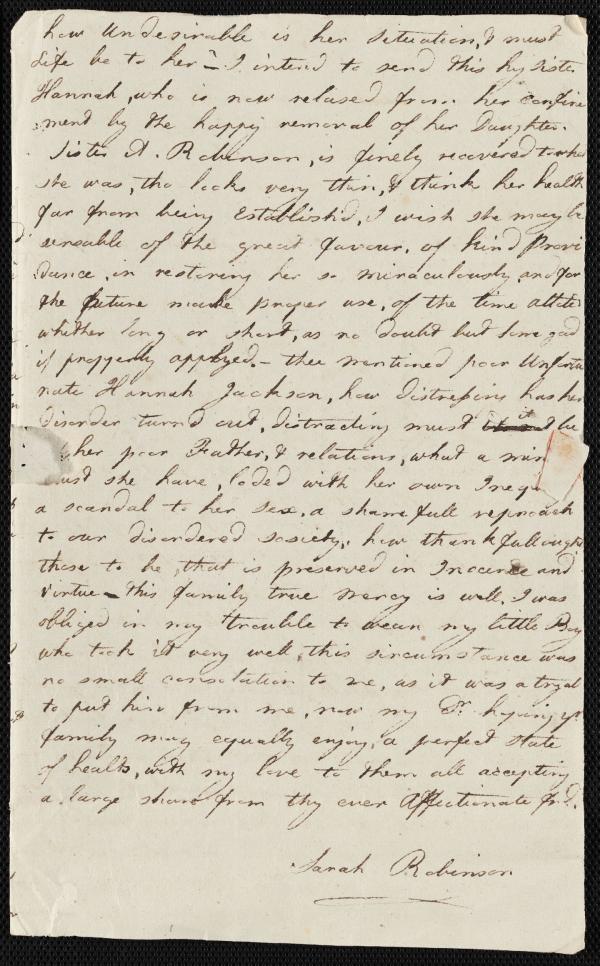 how Undesirable is her situation, & must
Life be to her – I intend to send this by sister
Hannah, who is now relased from her confine
ment by the happy removal of her Daughter.
Sister A. Robinson, is finely recovered to what
she was, tho looks very thin, & think her health
far from being Establish'd, I wish she may be
sensable of the great favour, of kind Provi
dance, in restoring her so miraculously, and for
the future make proper use, of the time
whether long or short, as no doubt but
if propperly applyed. – thee mentioned poor Unfortu
nate Hannah Jackson, how distressing has her
disorder turnd out, distracting must it be
her poor Father, & relations, what a min
must she have, loded with her own Iniqu
a scandal to her sex, a sharefull reproach
to our disordered society, how thankfull ought
those to be, that is preserved in Inocence and
virtue – this family true mercy is well, I was
obliged in my trouble to wean my little Boy
who took it very well, this sircumstance was
no small consolation to me, as it was a tryal
to put him from me, now my Dr. hoping yr
family may equally enjoy, a perfect state
of health, with my love to them all accepting
a large share from thy ever Affectionate frd.
Sarah Robinson